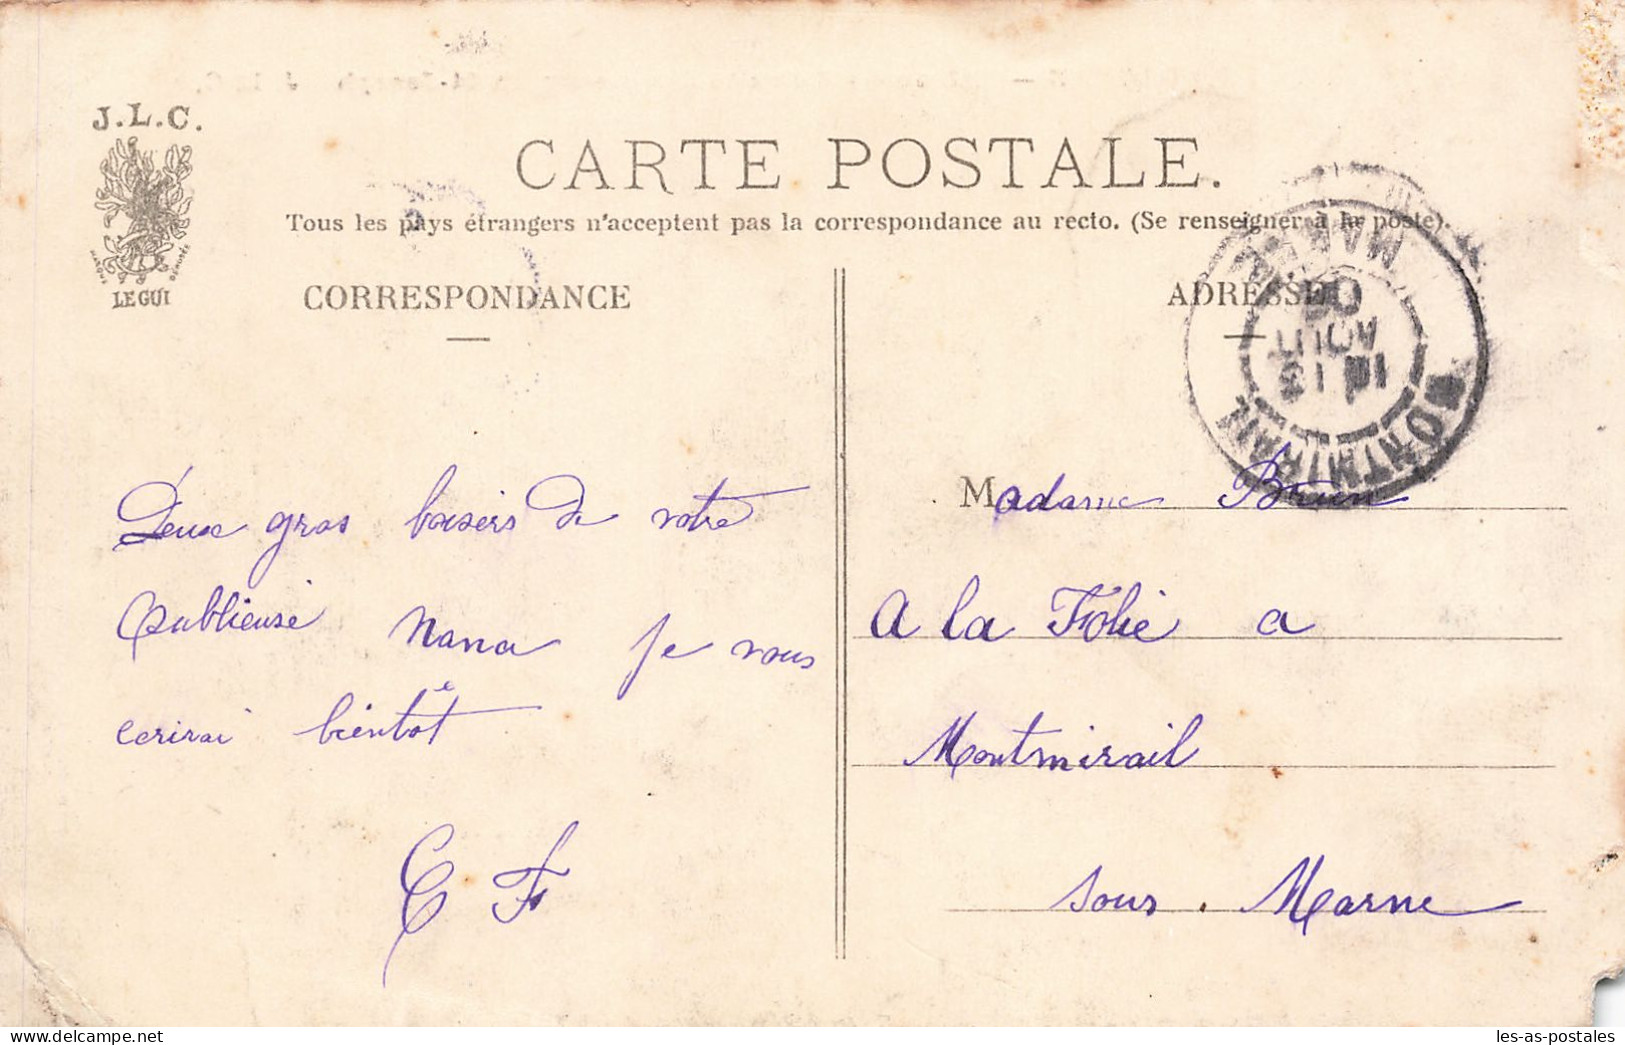 J.L.C.
MARQUE DÉPOSÉE
LE GUI
CARTE POSTALE.
Tous les pays étrangers n'acceptent pas la correspondance au recto. (Se renseigner à la poste).
CORRESPONDANCE
Deux gras baisers de votre
oublieuse Nana je vous
ecrirai bientôt
E F
ADRESSE
MONTMIRAIL
MARNE
13
AOUT
Madame Brun
A la Folie a
Montmirail
sous . Marne
delcampe.net
les-as-postales